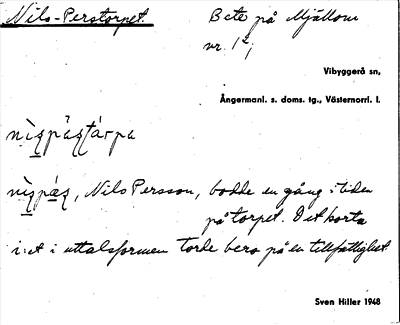 Nils-Perstorpet.
Bete på Mjällom
nr. 1²;
Vibyggerå sn,
Ångermanl. s. doms. tg., Västernorrl. l.
Nils Persson, bodde en gång i tiden
på torpet. Det korta
i:et i uttalsformen torde bero på en tillfällighet.
Sven Hiller 1948